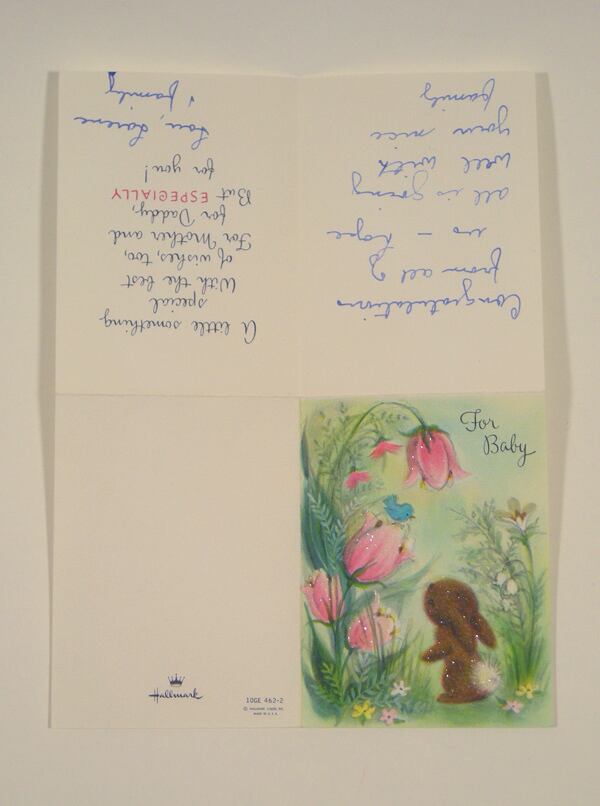 For
Baby
Congratulations
from all of
us — hope
all is going
well with
your nice
family
A little something
special
With the best
of wishes, too,
For Mother and
for Daddy,
But ESPECIALLY
for you!
Lou, Lorene
& family
Hallmark
10GE 462-2
© HALLMARK CARDS, INC.
MADE IN U.S.A.